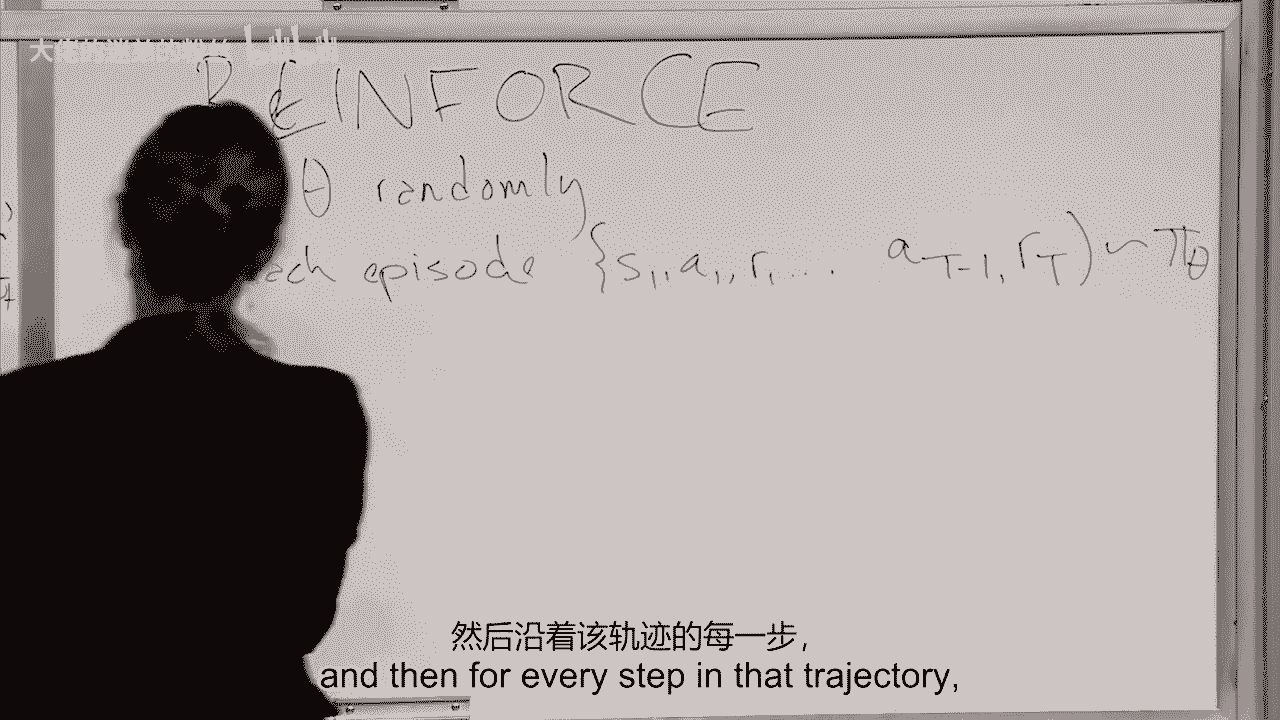 REINFORCE
θ randomly
ach episode {s₁, a₁, r₁, ... a_T-1, r_T) ~ π_θ
然后沿着该轨迹的每一步，
and then for every step in that trajectory,